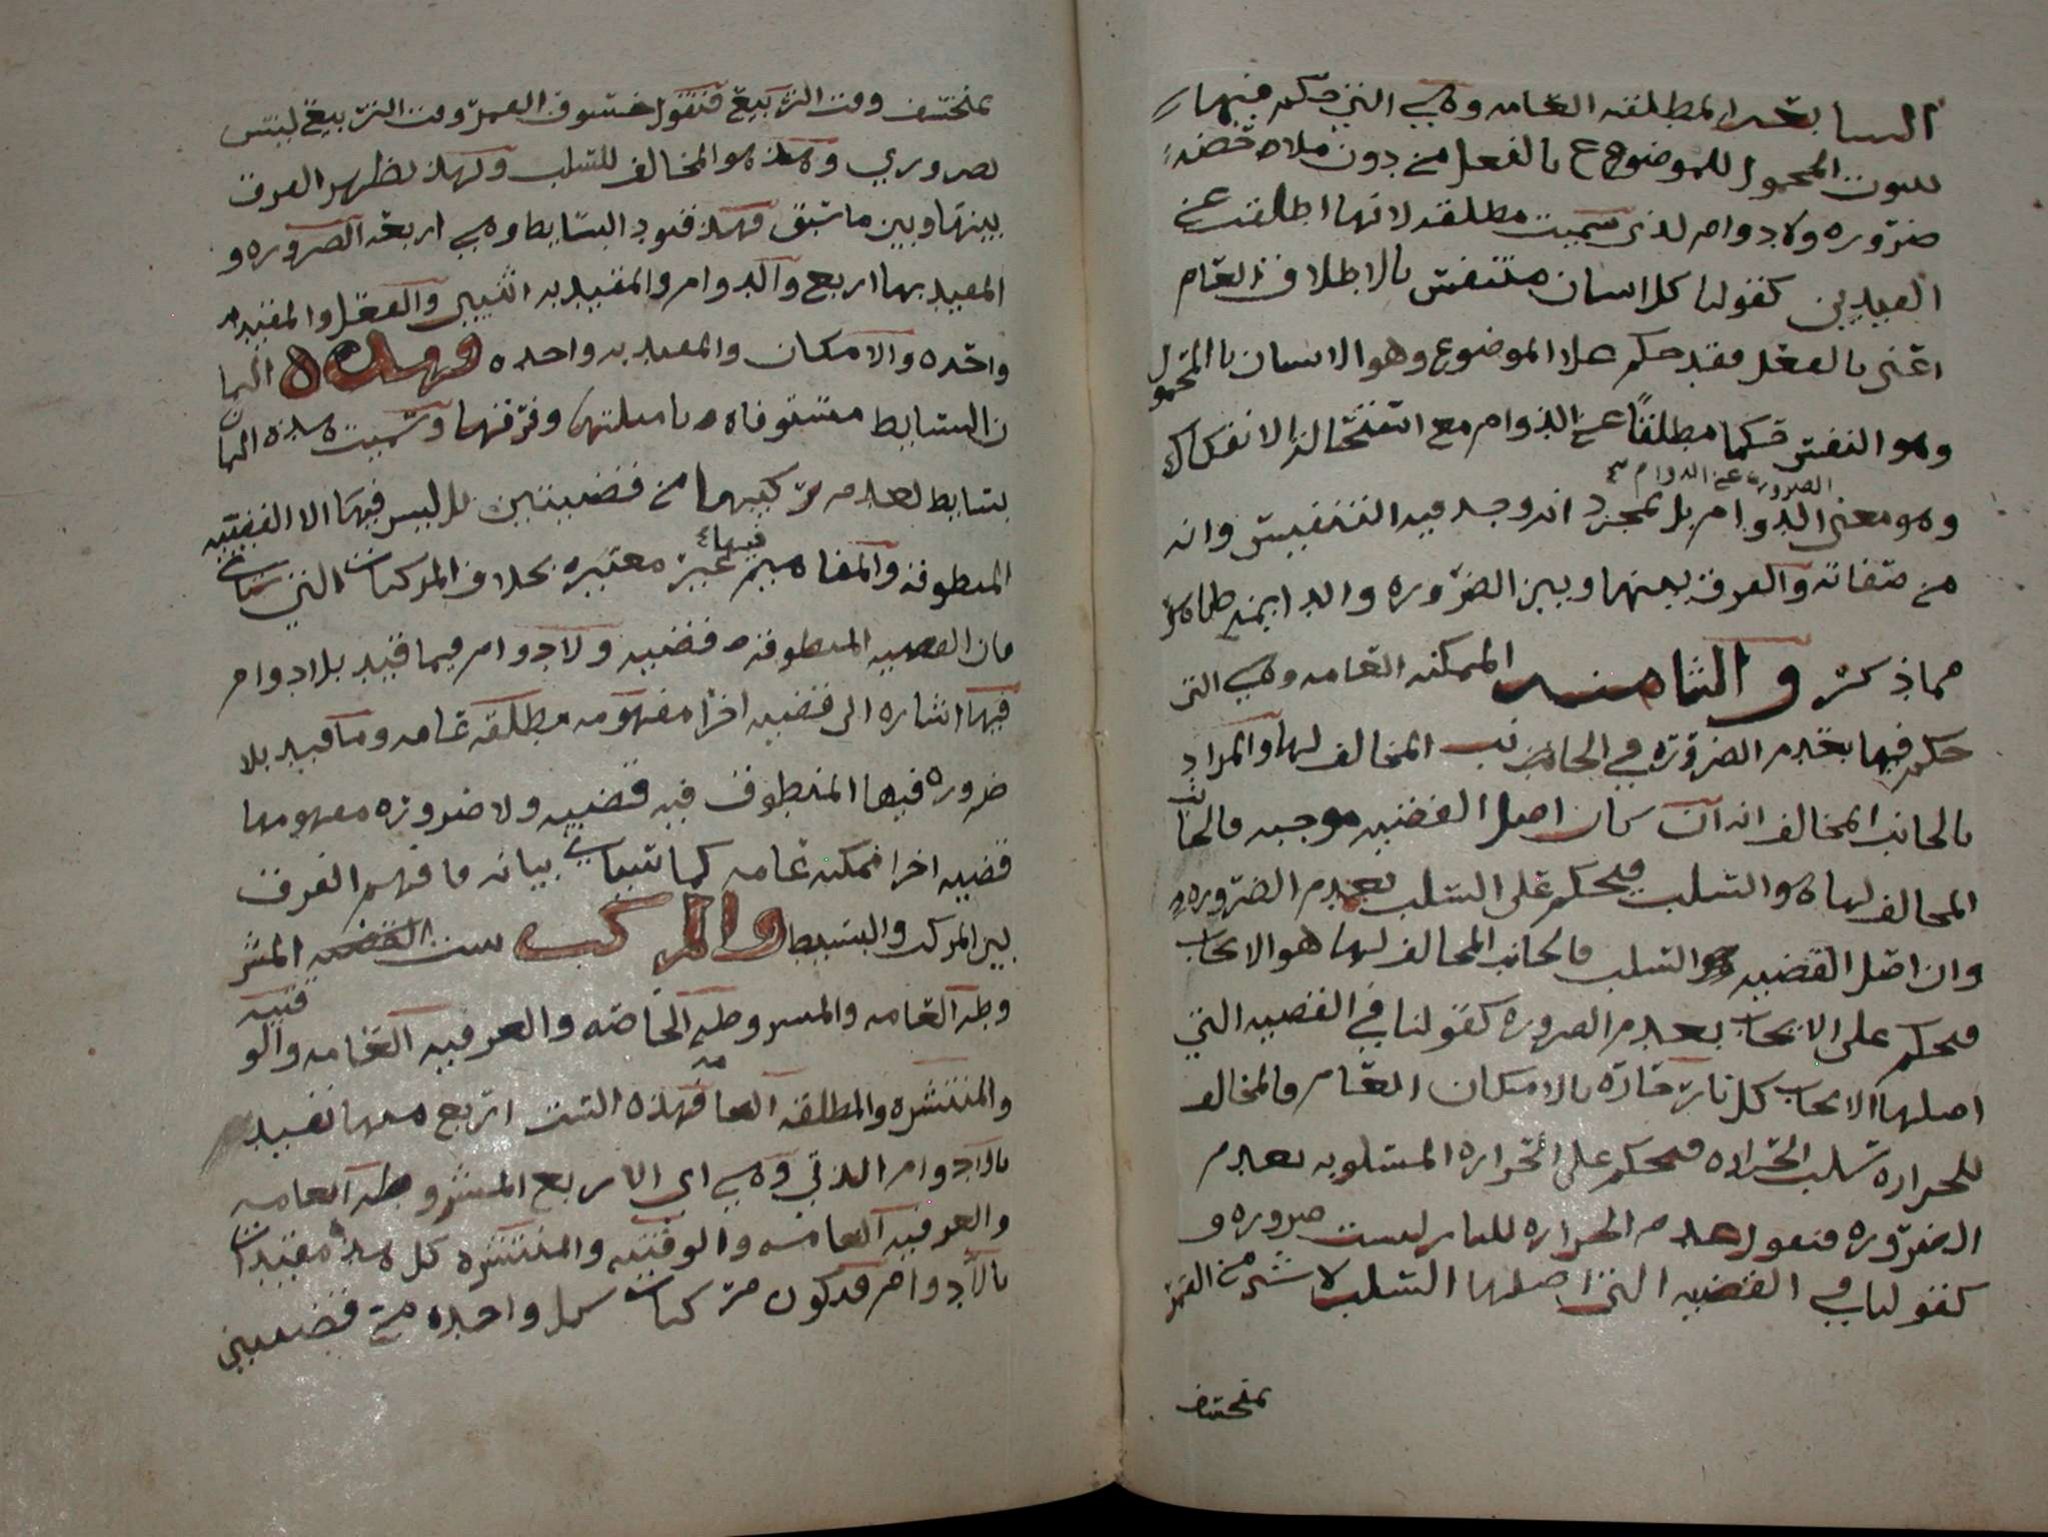 السابعه المطلقه العامه وهي التي حكم فيها
بثبوت المحمول للموضوع بالفعل من دون ملاحضه
ضروره ولا دوام لذي سميت مطلقه لانها اطلقت عن
القيدين كقولنا كل انسان متنفس بالاطلاق العام
اعني بالفعل فقد حكم علا الموضوع وهو الانسان باالمحمول
وهو النفس حكما مطلقاً عن الدوام مع الانفكاك
الضروره عن الدوام
وهو معنى الدوام بل بمجرد انه وجد فيه التنفيس وانه
من صفاته والفرق بينها وبين الضروره والدايمه ظاهر
مما ذكر والثامنه الممكنه العامه وهي التي
حكم فيها بعدم الضروره في الجانب المخالف لها والمراد
بالجانب المخالف انه ان كان اصل القضيه موجبه فالجانب
المخالف لها هو السلب فيحكم على السلب بعدم الضروره
وان اصل القضيه هو السلب فالجانب المخالف لها هو الايجاب
فيحكم على الايجاب بعدم الضروره كقولنا في القضيه التي
اصلها الايجاب كل نار حاره بالامكان العام فالمخالف
للحراره سلب الحراره فيحكم على الحراره المسلوبه بعدم
الضروره فنقول عدم الحراره للنار ليست ضروره و
كقولنا في القضيه التي اصلها السلب لا شي من القمر
بمنخسف
بمنخسف وقت التربيع فنقول خسوف القمر وقت التربيع ليس
بضروري وهذ هو المخالف للسلب وبهذ يظهر الفرق
بينها وبين ما سبق فهذ قيود البسايط وهي اربعه الضروره و
المقيد بها اربع والدوام والمقيد به اثنين والفعل والمقيد به
واحده والامكان والمقيد به واحده وهذه الثما
ن البسايط مستوفاه بامثلتها وفرقها وسميت هذه الثمان
بسايط لعدم تركيبها من قضيتين بل ليس فيها الا القضيه
المنطوقه والمفاهيم فيها غير معتبره بخلاف المركبات التي ستاتي
فان القضيه المنطوقه قضيه ولا دوام فيما قيد بلا دوام
فيها اشاره الى قضيه اخرا مفهومه مطلقه عامه وما قيد بلا
ضروره فيها المنطوق فيه قضيه ولا ضروره مفهومها
قضيه اخرا ممكنه عامه كما سياتي بيانه فافهم الفرق
بين المركب والبسيط والمركب ست القضيه المشر
وطه العامه والمشروطه الخاصه والعرفيه العامه والوقتيه
والمنتشره والمطلقه العامه فهذه الست اربع منها تقيد
بالادوام الذتي وهي اي الاربع المشروطه العامه
والعرفيه العامه والوقتيه والمنتشره كل هذه مقيدات
بالادوام فتكون مركبات كل واحده من قضيتين